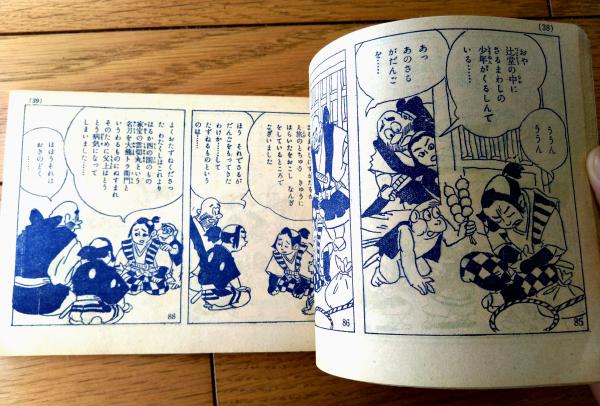 (38)
おや
辻堂の中に
さるまわしの
少年がくるしんで
いる……
あっ
あのさる
がだんご
を……
ううん
ううん
85
86
(39)
え旅のとちゅう きゅうに
はらいたをおこし なんぎ
をしているところで
ございました
ほう それでさるが
だんごをもってきた
わけか……して
たずねるものという
のは？
よくおたずねくださっ
た わたくしはこれより
はるか四の国のもの
家宝の雷切丸という
名刀を大熊トラ衛門
というわるものにぬすまれ
そのために父上はとう
とう病気になって
しまいました……
ほほうそれは
おきのどく
88